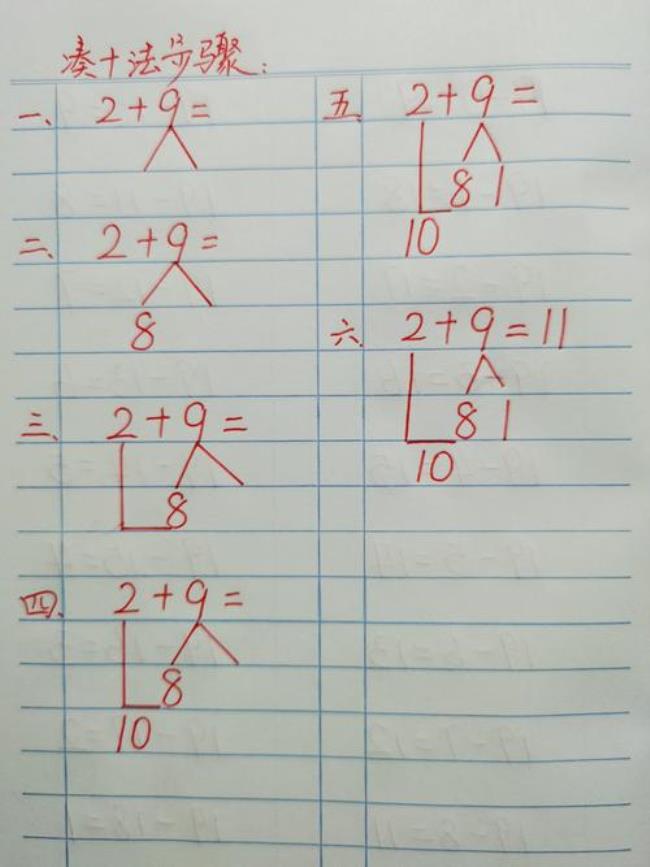 凑十法步骤:
一、 2+9=
二、 2+9=
8
三、 2+9=
8
四、 2+9=
8
10
五、 2+9=
8 1
10
六、 2+9=11
8 1
10